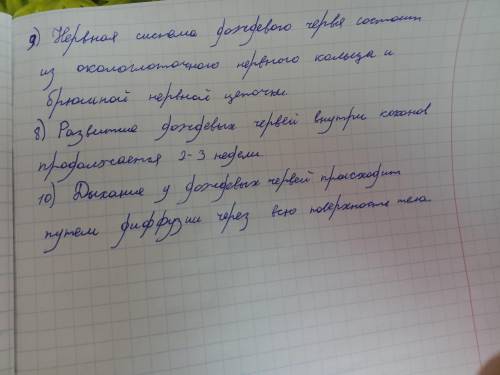 9) Нервная система дождевого червя состоит
из окологлоточного нервного кольца и
брюшной нервной цепочки.
8) Развитие дождевых червей внутри коконов
продолжается 2-3 недели.
10) Дыхание у дождевых червей происходит
путем диффузии через всю поверхность тела